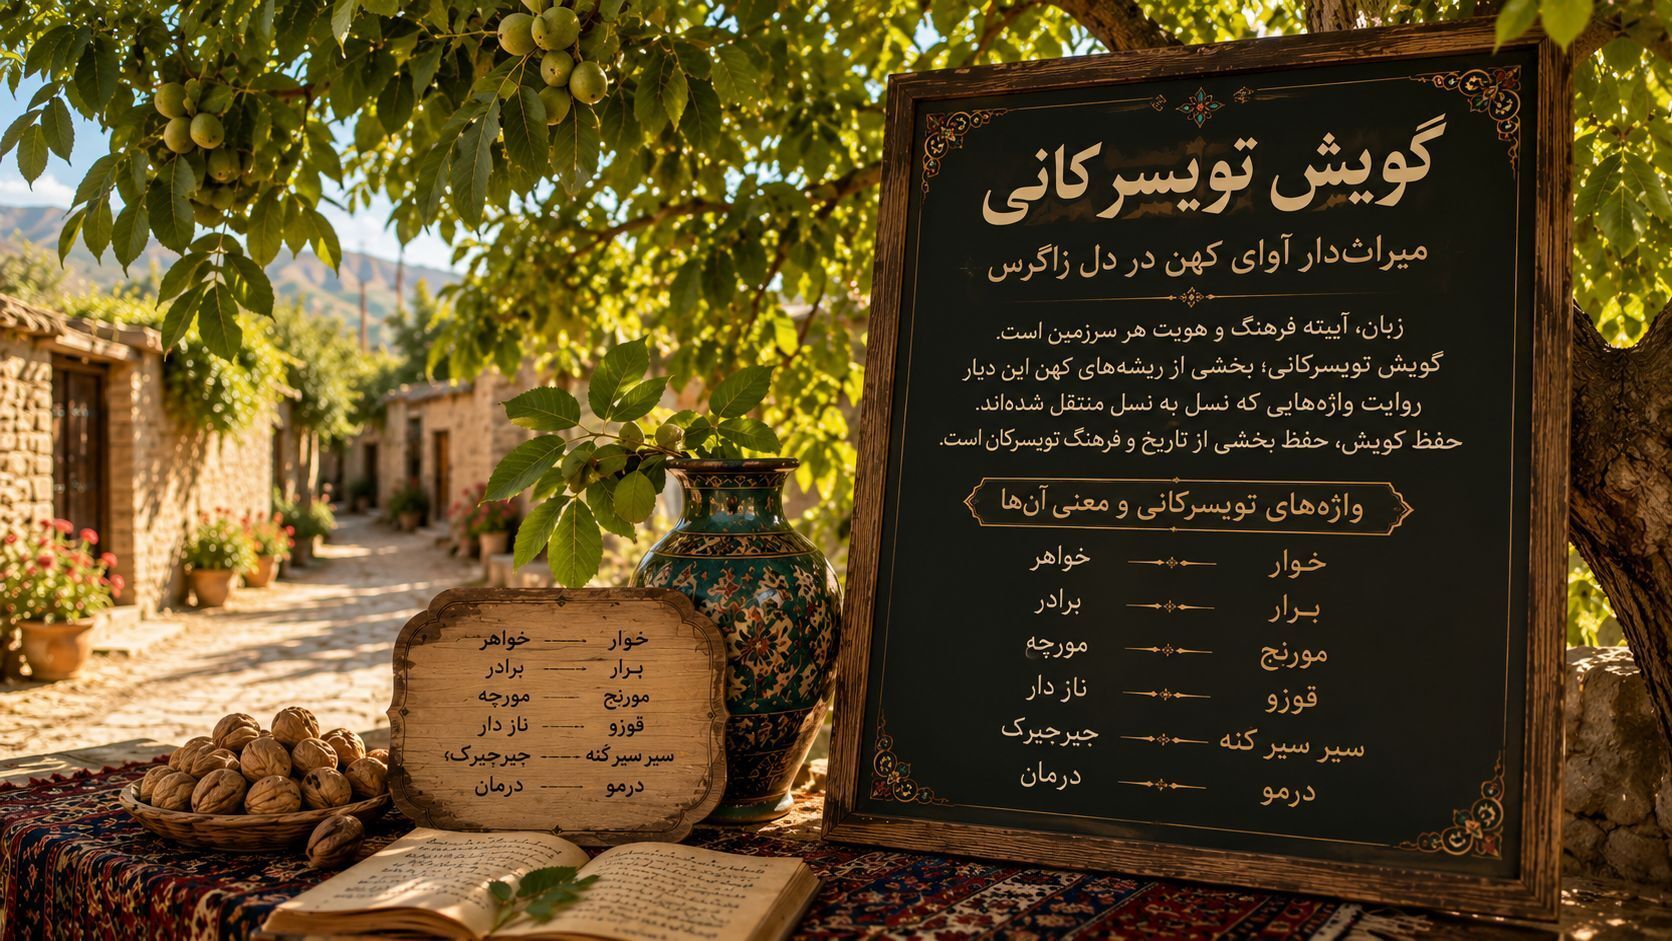 گویش تویسرکانی
میراث‌دار آوای کهن در دل زاگرس
زبان، آییته فرهنگ و هویت هر سرزمین است.
گویش تویسرکانی؛ بخشی از ریشه‌های کهن این دیار
روایت واژه‌هایی که نسل به نسل منتقل شده‌اند.
حفظ کویش، حفظ بخشی از تاریخ و فرهنگ تویسرکان است.
واژه‌های تویسرکانی و معنی آن‌ها
خوار خواهر
برار برادر
مورنج مورچه
قوزو ناز دار
سیر سیر کنه جیرجیرک
درمو درمان
خوار خواهر
برار برادر
مورنج مورچه
قوزو ناز دار
سیر سیر کُنه جیرجیرک؛
درمو درمان